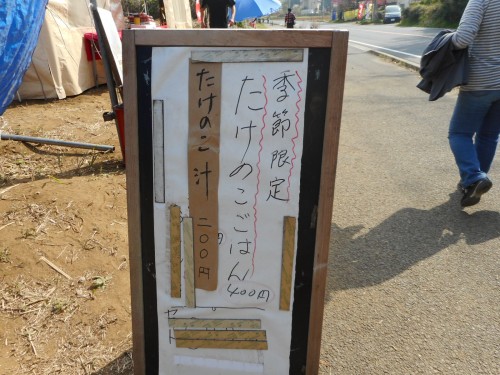 季節限定
たけのこごはん
400円
たけのこ汁 二〇〇円